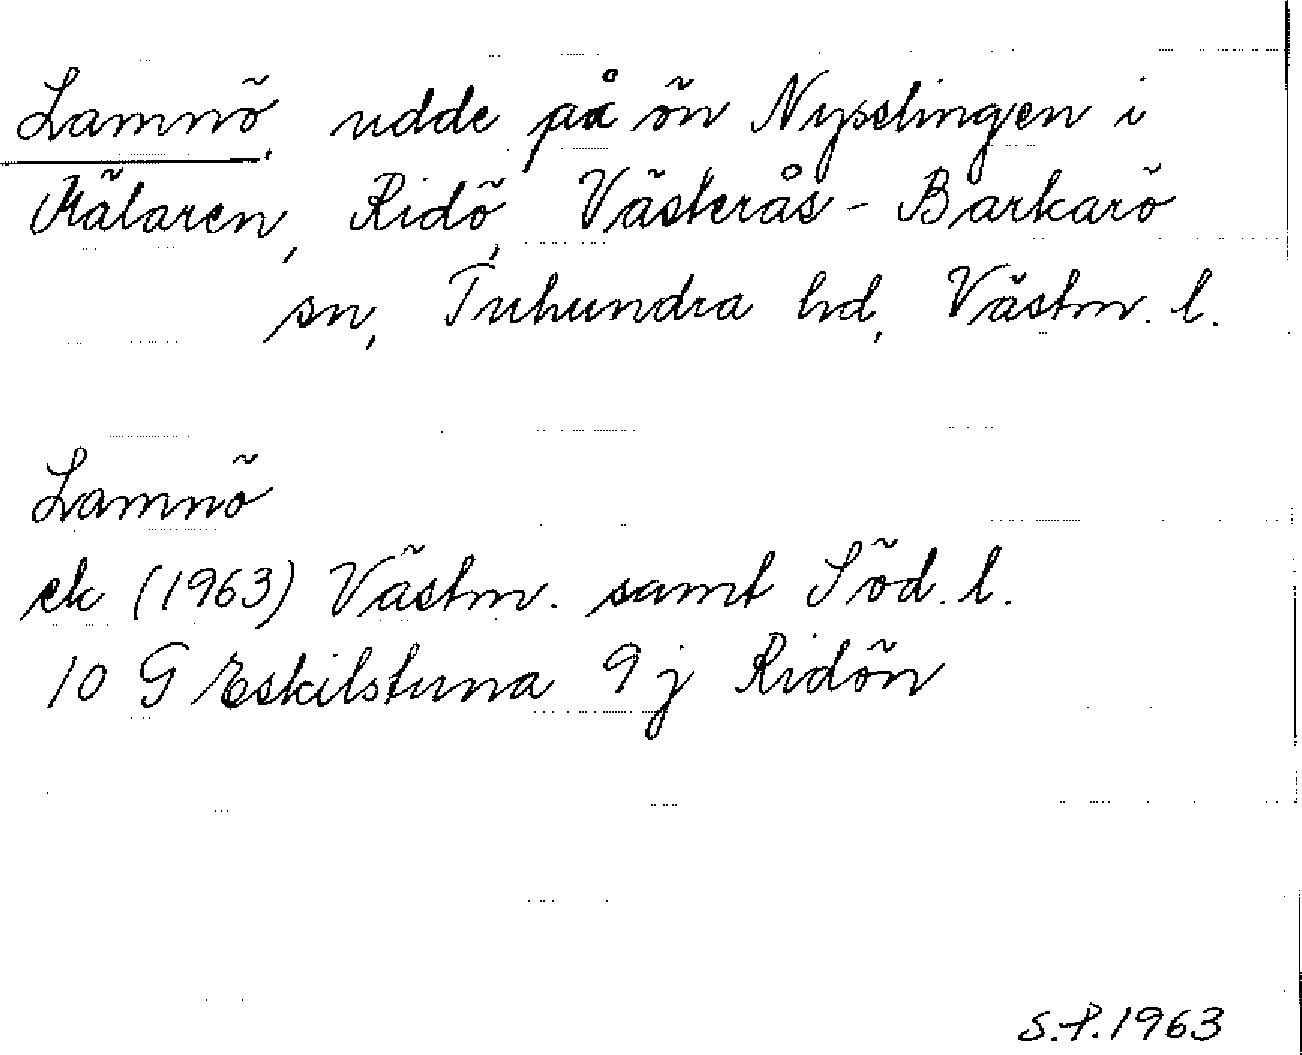 Lamnö, udde på ön Nyselingen i
Mälaren, Ridö, Västerås-Barkarö
sn, Tuhundra hd, Västm. l.
Lamnö
ek (1963) Västm. samt Söd. l.
10 G Eskilstuna 9 j Ridön
S.P.1963